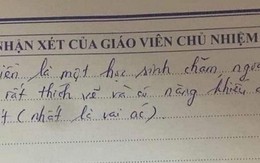 NHẬN XÉT CỦA GIÁO VIÊN CHỦ NHIỆM
là một học sinh chăm, ngoa
rất thích vẽ và có năng khiếu
(nhất là vai ác).